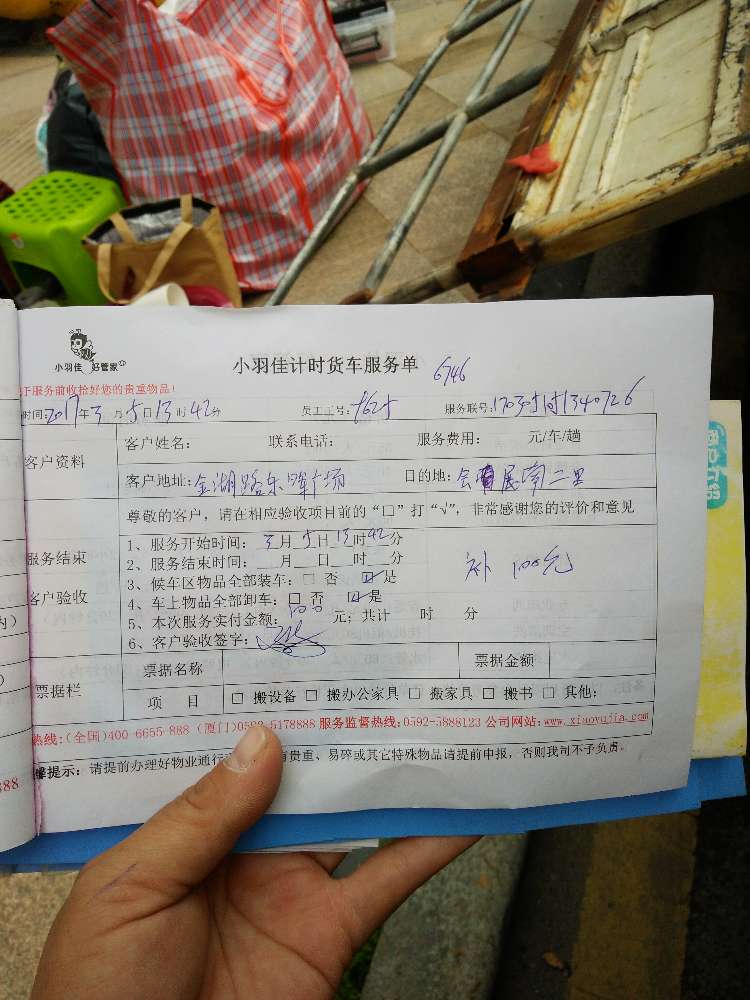 小羽佳 好管家
小羽佳计时货车服务单 6746
于服务前收拾好您的贵重物品!
时间:2017年3月5日13时42分 员工工号: 服务联号:
客户资料 客户姓名: 联系电话: 服务费用: 元/车/趟
客户地址:金湖路乐晖广场 目的地:会展南二里
尊敬的客户,请在相应验收项目前的“口”打“√”,非常感谢您的评价和意见
服务结束
客户验收
1、服务开始时间:3月5日13时42分
2、服务结束时间: 月 日 时 分
3、候车区物品全部装车:□ 否 ☑ 是
4、车上物品全部卸车:□ 否 ☑ 是
5、本次服务实付金额:100元;共计 时 分
6、客户验收签字:
补 100元
票据栏 票据名称 票据金额
项 目 □ 搬设备 □ 搬办公家具 □ 搬家具 □ 搬书 □ 其他:
热线:(全国)400-6655-888 (厦门)0592-5178888 服务监督热线:0592-5888123 公司网站:www.xiaoyujia.com
馨提示: 请提前办理好物业通行 有贵重、易碎或其它特殊物品请提前申报,否则我司不予负责。